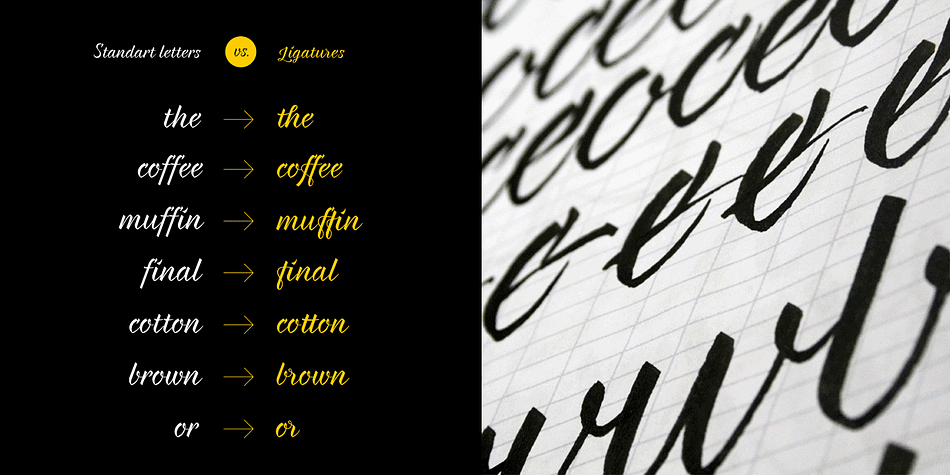 Standart letters vs. Ligatures
the → the
coffee → coffee
muffin → muffin
final → final
cotton → cotton
brown → brown
or → or